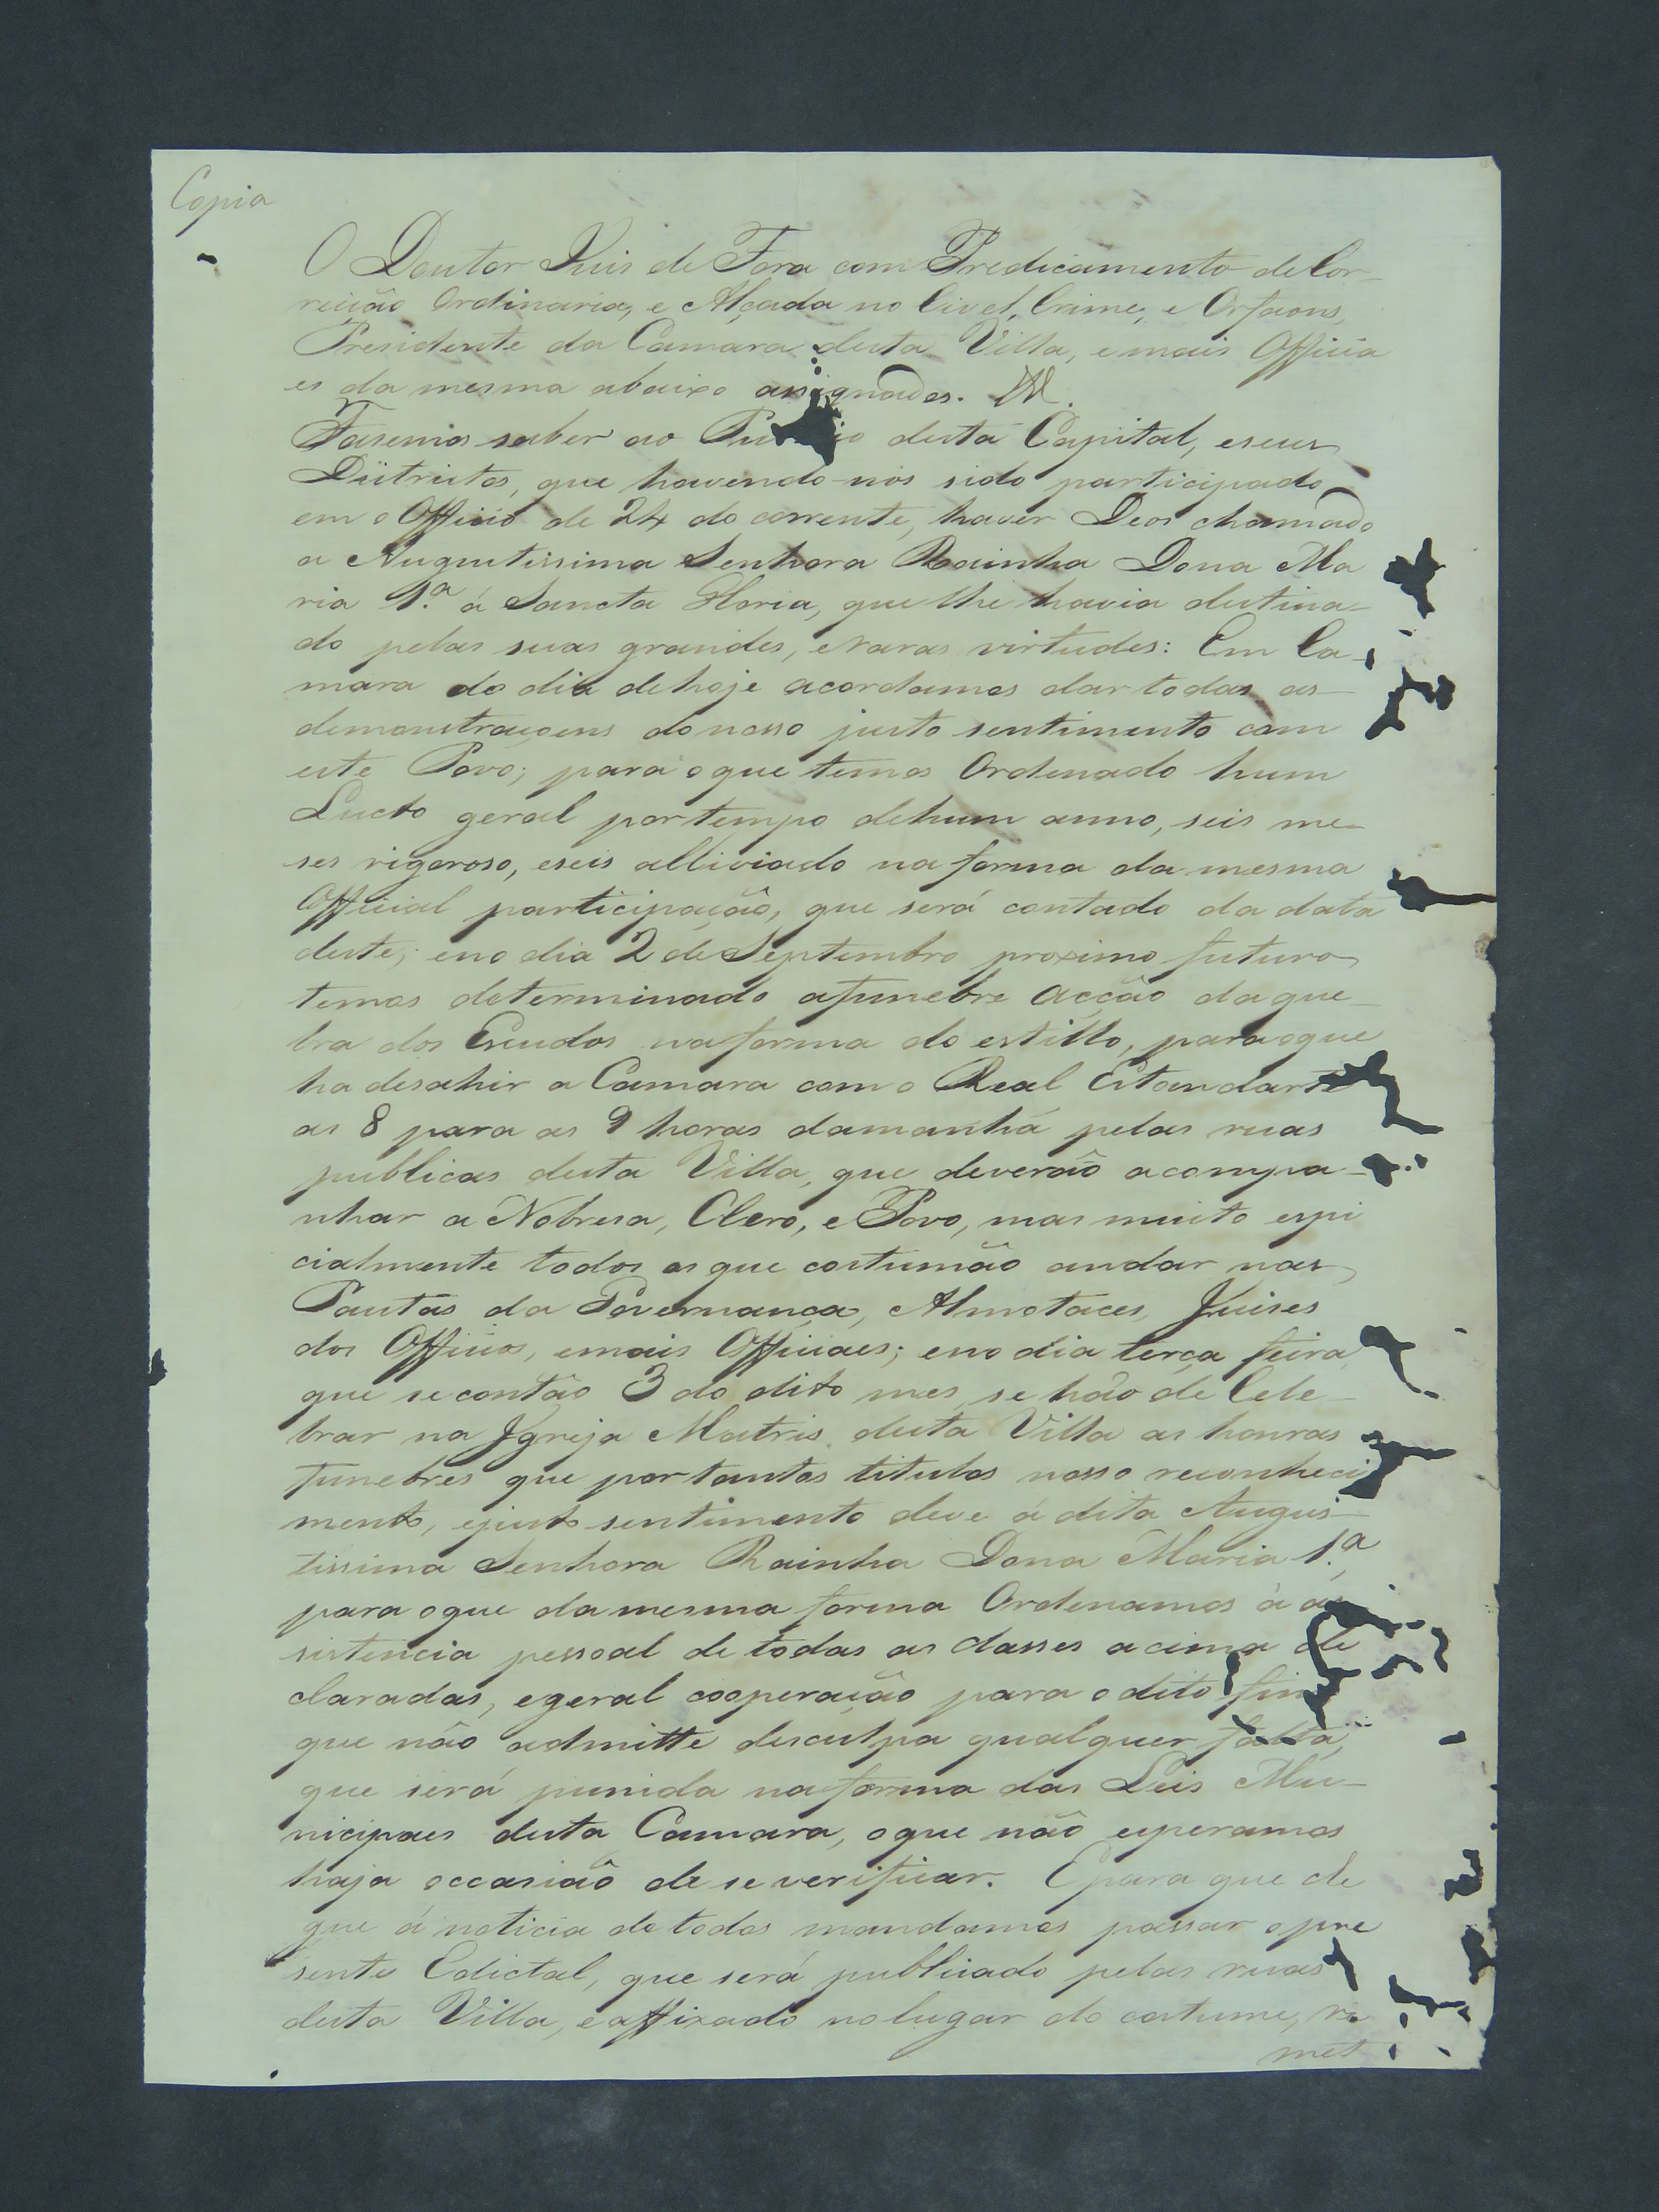 Copia
O Doutor Juis de Fora com Predicamento de Cor-
reição Ordinaria, e Alçada no Civel, Crime, e Orfaons,
Presidente da Camara desta Villa, e mais Officia
es da mesma abaixo assignados.
Fasemos saber ao desta Capital, e seus
Distritos, que havendo-nos sido participado
em o Officio de 24 do corrente, haver Deos chamado
a Augustissima Senhora Rainha Dona Ma
ria 1.ª á Sancta Gloria, que lhe havia destina-
do pelas suas grandes, e raras virtudes: Em Ca-
mara do dia de hoje acordamos dar todas as
demonstraçoens do nosso justo sentimento com
este Povo; para o que temos Ordenado hum
Lucto geral por tempo de hum anno, seis me-
ses rigoroso, e seis alliviado na forma da mesma
Official participação, que será contado da data
deste; e no dia 2 de Septembro proximo futuro
temos determinado a funebre acção da que-
bra dos Escudos na forma do estillo, para o que
ha de sahir a Camara com o Real Estandarte
as 8 para as 9 horas da manhá pelas ruas
publicas desta Villa, que deverão acompa-
nhar a Nobresa, Clero, e Povo, mas muito espi
cialmente todos os que costumão andar nas
Pautas da Governança, Almotaces, Juises
dos Officios, e mais Officiaes; e no dia terça feira
que se contão 3 do dito mes, se hão de Cele-
brar na Igreja Matris desta Villa as honras
funebres que por tantos titulos nosso reconheci
mento, e justo sentimento deve á dita Augus-
tissima Senhora Rainha Dona Maria 1.ª
para o que da mesma forma Ordenamos á as
sistencia pessoal de todas as classes acima de
claradas, e geral cooperação para o dito fim
que não admitte desculpa qualquer falta,
que será punida na forma das Leis Mu-
nicipaes desta Camara, o que não esperamos
haja occasião de se verificar. E para que che
gue á noticia de todos mandamos passar o pre
sente Edictal, que será publicado pelas ruas
desta Villa, e affixado no lugar do costume, re
met